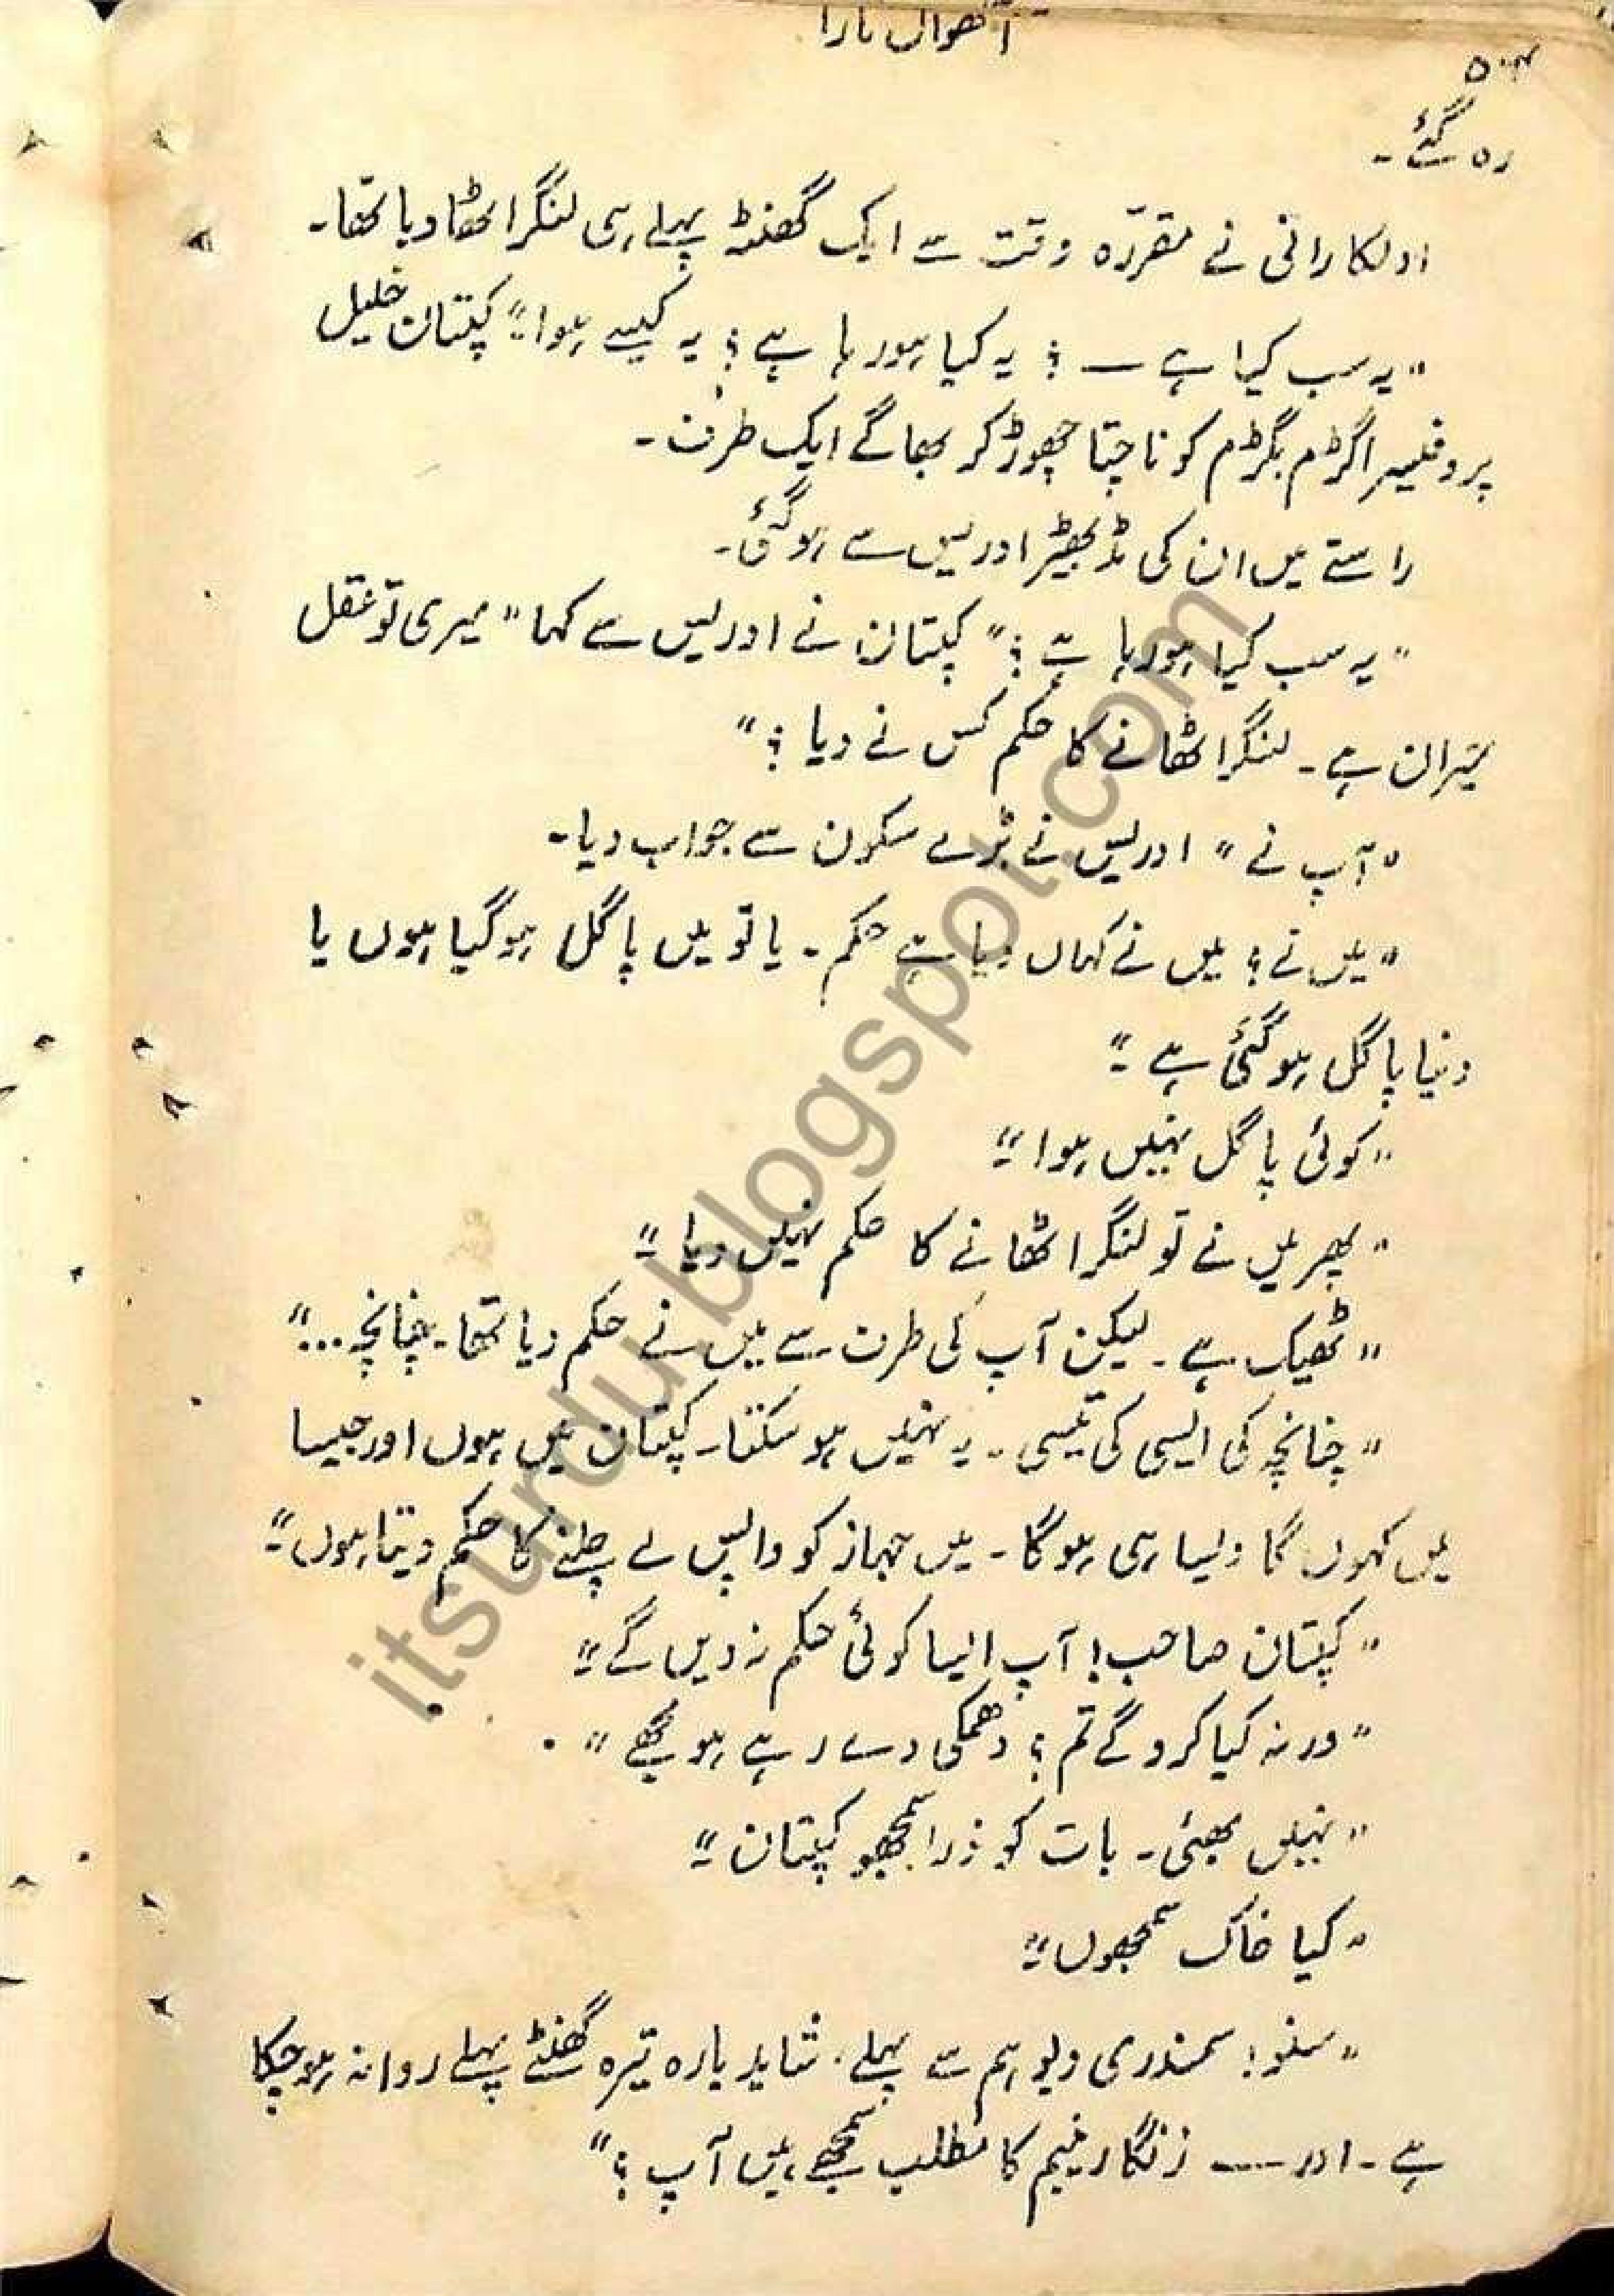 آٹھواں تارا
رہ گئے۔
اور لکا رانی نے مقررہ وقت سے ایک گھنٹہ پہلے ہی لنگر اٹھا دیا تھا۔
"یہ سب کیا ہے — ؟ یہ کیا ہو رہا ہے؟ یہ کیسے ہوا" کپتان خلیل
پروفیسر اگڑم بگڑم کو ناچتا چھوڑ کر بھاگے ایک طرف۔
راستے میں ان کی مڈبھیڑ ادریس سے ہو گئی۔
"یہ سب کیا ہو رہا ہے؟" کپتان نے ادریس سے کہا "میری تو عقل
حیران ہے۔ لنگر اٹھانے کا حکم کس نے دیا؟"
"آپ نے" ادریس نے بڑے سکون سے جواب دیا۔
"میں نے؟ میں نے کہاں دیا ہے حکم۔ یا تو میں پاگل ہو گیا ہوں یا
دنیا پاگل ہو گئی ہے۔"
"کوئی پاگل نہیں ہوا۔"
"پھر میں نے تو لنگر اٹھانے کا حکم نہیں دیا۔"
"ٹھیک ہے۔ لیکن آپ کی طرف سے میں نے حکم دیا تھا۔ چنانچہ..."
"چنانچہ کی ایسی کی تیسی۔ یہ نہیں ہو سکتا۔ کپتان میں ہوں اور جیسا
میں کہوں گا ویسا ہی ہو گا۔ میں جہاز کو واپس لے چلنے کا حکم دیتا ہوں۔"
"کپتان صاحب! آپ ایسا کوئی حکم نہ دیں گے۔"
"ورنہ کیا کرو گے تم؟ دھمکی دے رہے ہو مجھے"۔
"نہیں بھئی۔ بات کو ذرا سمجھو کپتان۔"
"کیا خاک سمجھوں۔"
"سنو! سمندری دیو ہم سے پہلے، شاید بارہ تیرہ گھنٹے پہلے روانہ ہو چکا
ہے۔ اور — زنگارنیم کا مطلب سمجھے ہیں آپ؟"
itsurdu.blogspot.com